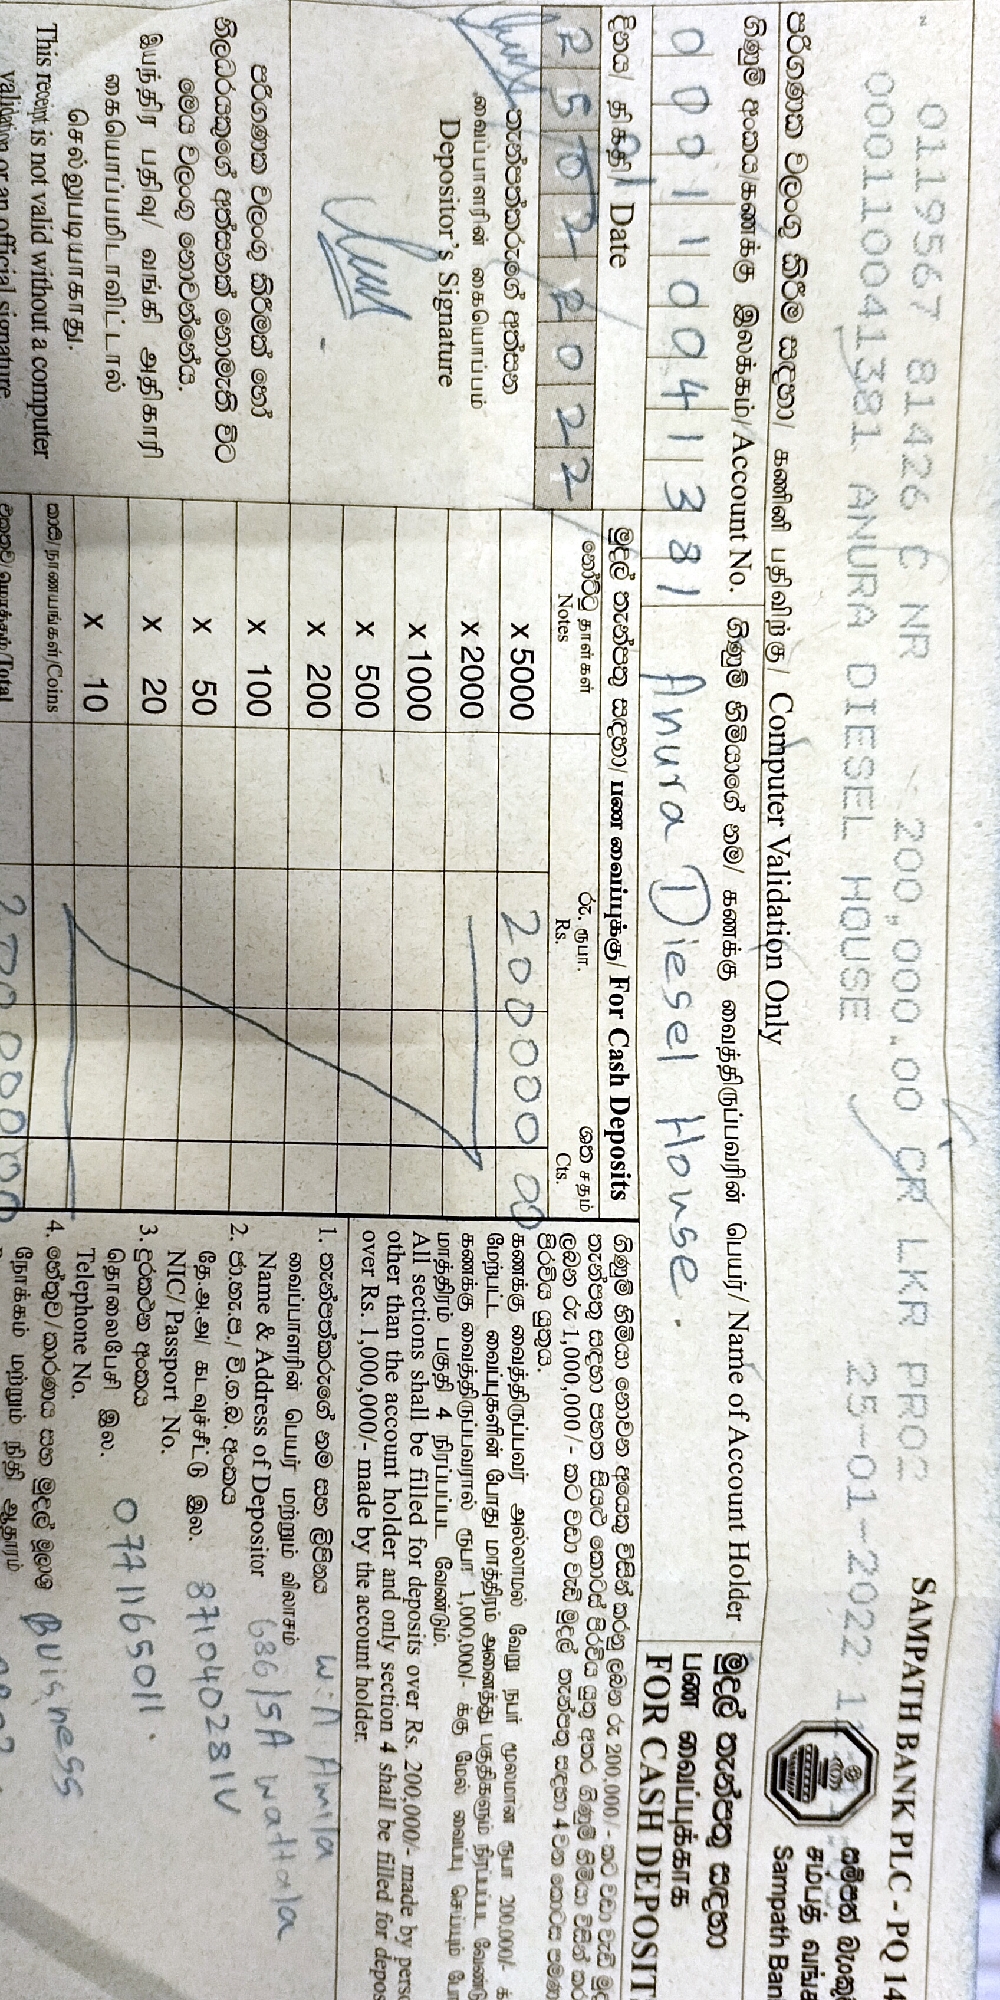 SAMPATH BANK PLC - PQ 14
0119567 81426 C NR 200,000.00 CR LKR PROC
000110041381 ANURA DIESEL HOUSE 25-01-2022
සම්පත් බැංකු
சம்பத் வங்
Sampath Ban
පරිගණක වලංගු කිරීම සඳහා/ கணினி பதிவிற்கு/ Computer Validation Only
ගිණුම් අංකය/கணக்கு இலக்கம்/Account No.
ගිණුම් හිමියාගේ නම/ கணக்கு வைத்திருப்பவரின் பெயர்/ Name of Account Holder
000110041381 Anura Diesel House.
මුදල් තැන්පතු සඳහා
பண வைப்புக்காக
FOR CASH DEPOSIT
දිනය/ திகதி/ Date
25012022
තැන්පත්කරුගේ අත්සන
வைப்பாளரின் கையொப்பம்
Depositor's Signature
පරිගණක වලංගු කිරීමක් හෝ
නිලධරයකුගේ අත්සනක් නොමැති විට
මෙය වලංගු නොවන්නේය.
இயந்திர பதிவு/ வங்கி அதிகாரி
கையொப்பமிடாவிட்டால்
செல்லுபடியாகாது.
This receipt is not valid without a computer
validation or an official signature
මුදල් තැන්පතු සඳහා/ பண வைப்புக்கு/ For Cash Deposits
නෝට්ටු தாள்கள் Notes
රු. ரூபா. Rs.
ශත சதம் Cts.
x 5000 200000 00
x 2000
x 1000
x 500
x 200
x 100
x 50
x 20
x 10
කාසි/நாணயங்கள்/Coins
එකතුව/மொத்தம்/Total 200000 00
ගිණුම් හිමියා නොවන අයෙකු විසින් කරනු ලබන රු 200,000/- කට වඩා වැඩි මුදල්
තැන්පතු සඳහා පහත සියලු කොටස් පිරවිය යුතු අතර ගිණුම් හිමියා විසින් කර
ලබන රු 1,000,000/- කට වඩා වැඩි මුදල් තැන්පතු සඳහා 4 වන කොටස පමණ
පිරවිය යුතුය.
கணக்கு வைத்திருப்பவர் அல்லாமல் வேறு நபர் மூலமான ரூபா 200,000/- க்
மேற்பட்ட வைப்புகளின் போது மாத்திரம் அனைத்து பகுதிகளும் நிரப்பப்பட வேண்டு
கணக்கு வைத்திருப்பவரால் ரூபா 1,000,000/- க்கு மேல் வைப்பு செய்யும் போ
மாத்திரம் பகுதி 4 நிரப்பப்பட வேண்டும்.
All sections shall be filled for deposits over Rs. 200,000/- made by perso
other than the account holder and only section 4 shall be filled for depos
over Rs. 1,000,000/- made by the account holder.
1. තැන්පත්කරුගේ නම සහ ලිපිනය
வைப்பாளரின் பெயர் மற்றும் விலாசம்
Name & Address of Depositor
W.A Amila
636/5A Wattala
2. ජා.හැ.ප./ වි.ග.බ. අංකය
தே.அ.அ/ கடவுச்சீட்டு இல.
NIC/ Passport No.
871040281V
3. දුරකථන අංකය
தொலைபேசி இல.
Telephone No.
0771165011.
4. හේතුව/කාරණය සහ මුදල් මූලාශ්‍ර
நோக்கம் மற்றும் நிதி ஆதாரம்
Buisness